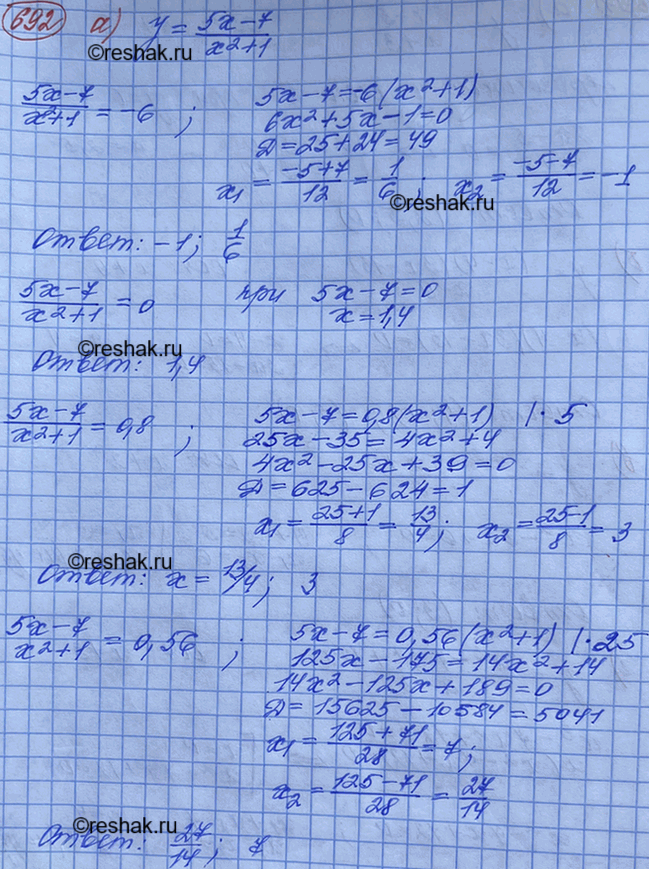 692 а) y = (5x-7)/(x²+1)
©reshak.ru
(5x-7)/(x²+1) = -6 ; 5x-7=-6(x²+1)
6x²+5x-1=0
Д=25+24=49
x₁ = (-5+7)/12 = 1/6 ; x₂ = (-5-7)/12 = -1
©reshak.ru
Ответ: -1; 1/6
(5x-7)/(x²+1) = 0 при 5x-7=0
x=1,4
©reshak.ru
Ответ: 1,4
(5x-7)/(x²+1) = 0,8 ; 5x-7=0,8(x²+1) |·5
25x-35=4x²+4
4x²-25x+39=0
Д=625-624=1
x₁ = (25+1)/8 = 13/4 ; x₂ = (25-1)/8 = 3
©reshak.ru
Ответ: x = 13/4; 3
(5x-7)/(x²+1) = 0,56 ; 5x-7=0,56(x²+1) |·25
125x-175=14x²+14
14x²-125x+189=0
Д=15625-10584=5041
x₁ = (125+71)/28 = 7;
x₂ = (125-71)/28 = 27/14
©reshak.ru
Ответ: 27/14; 7